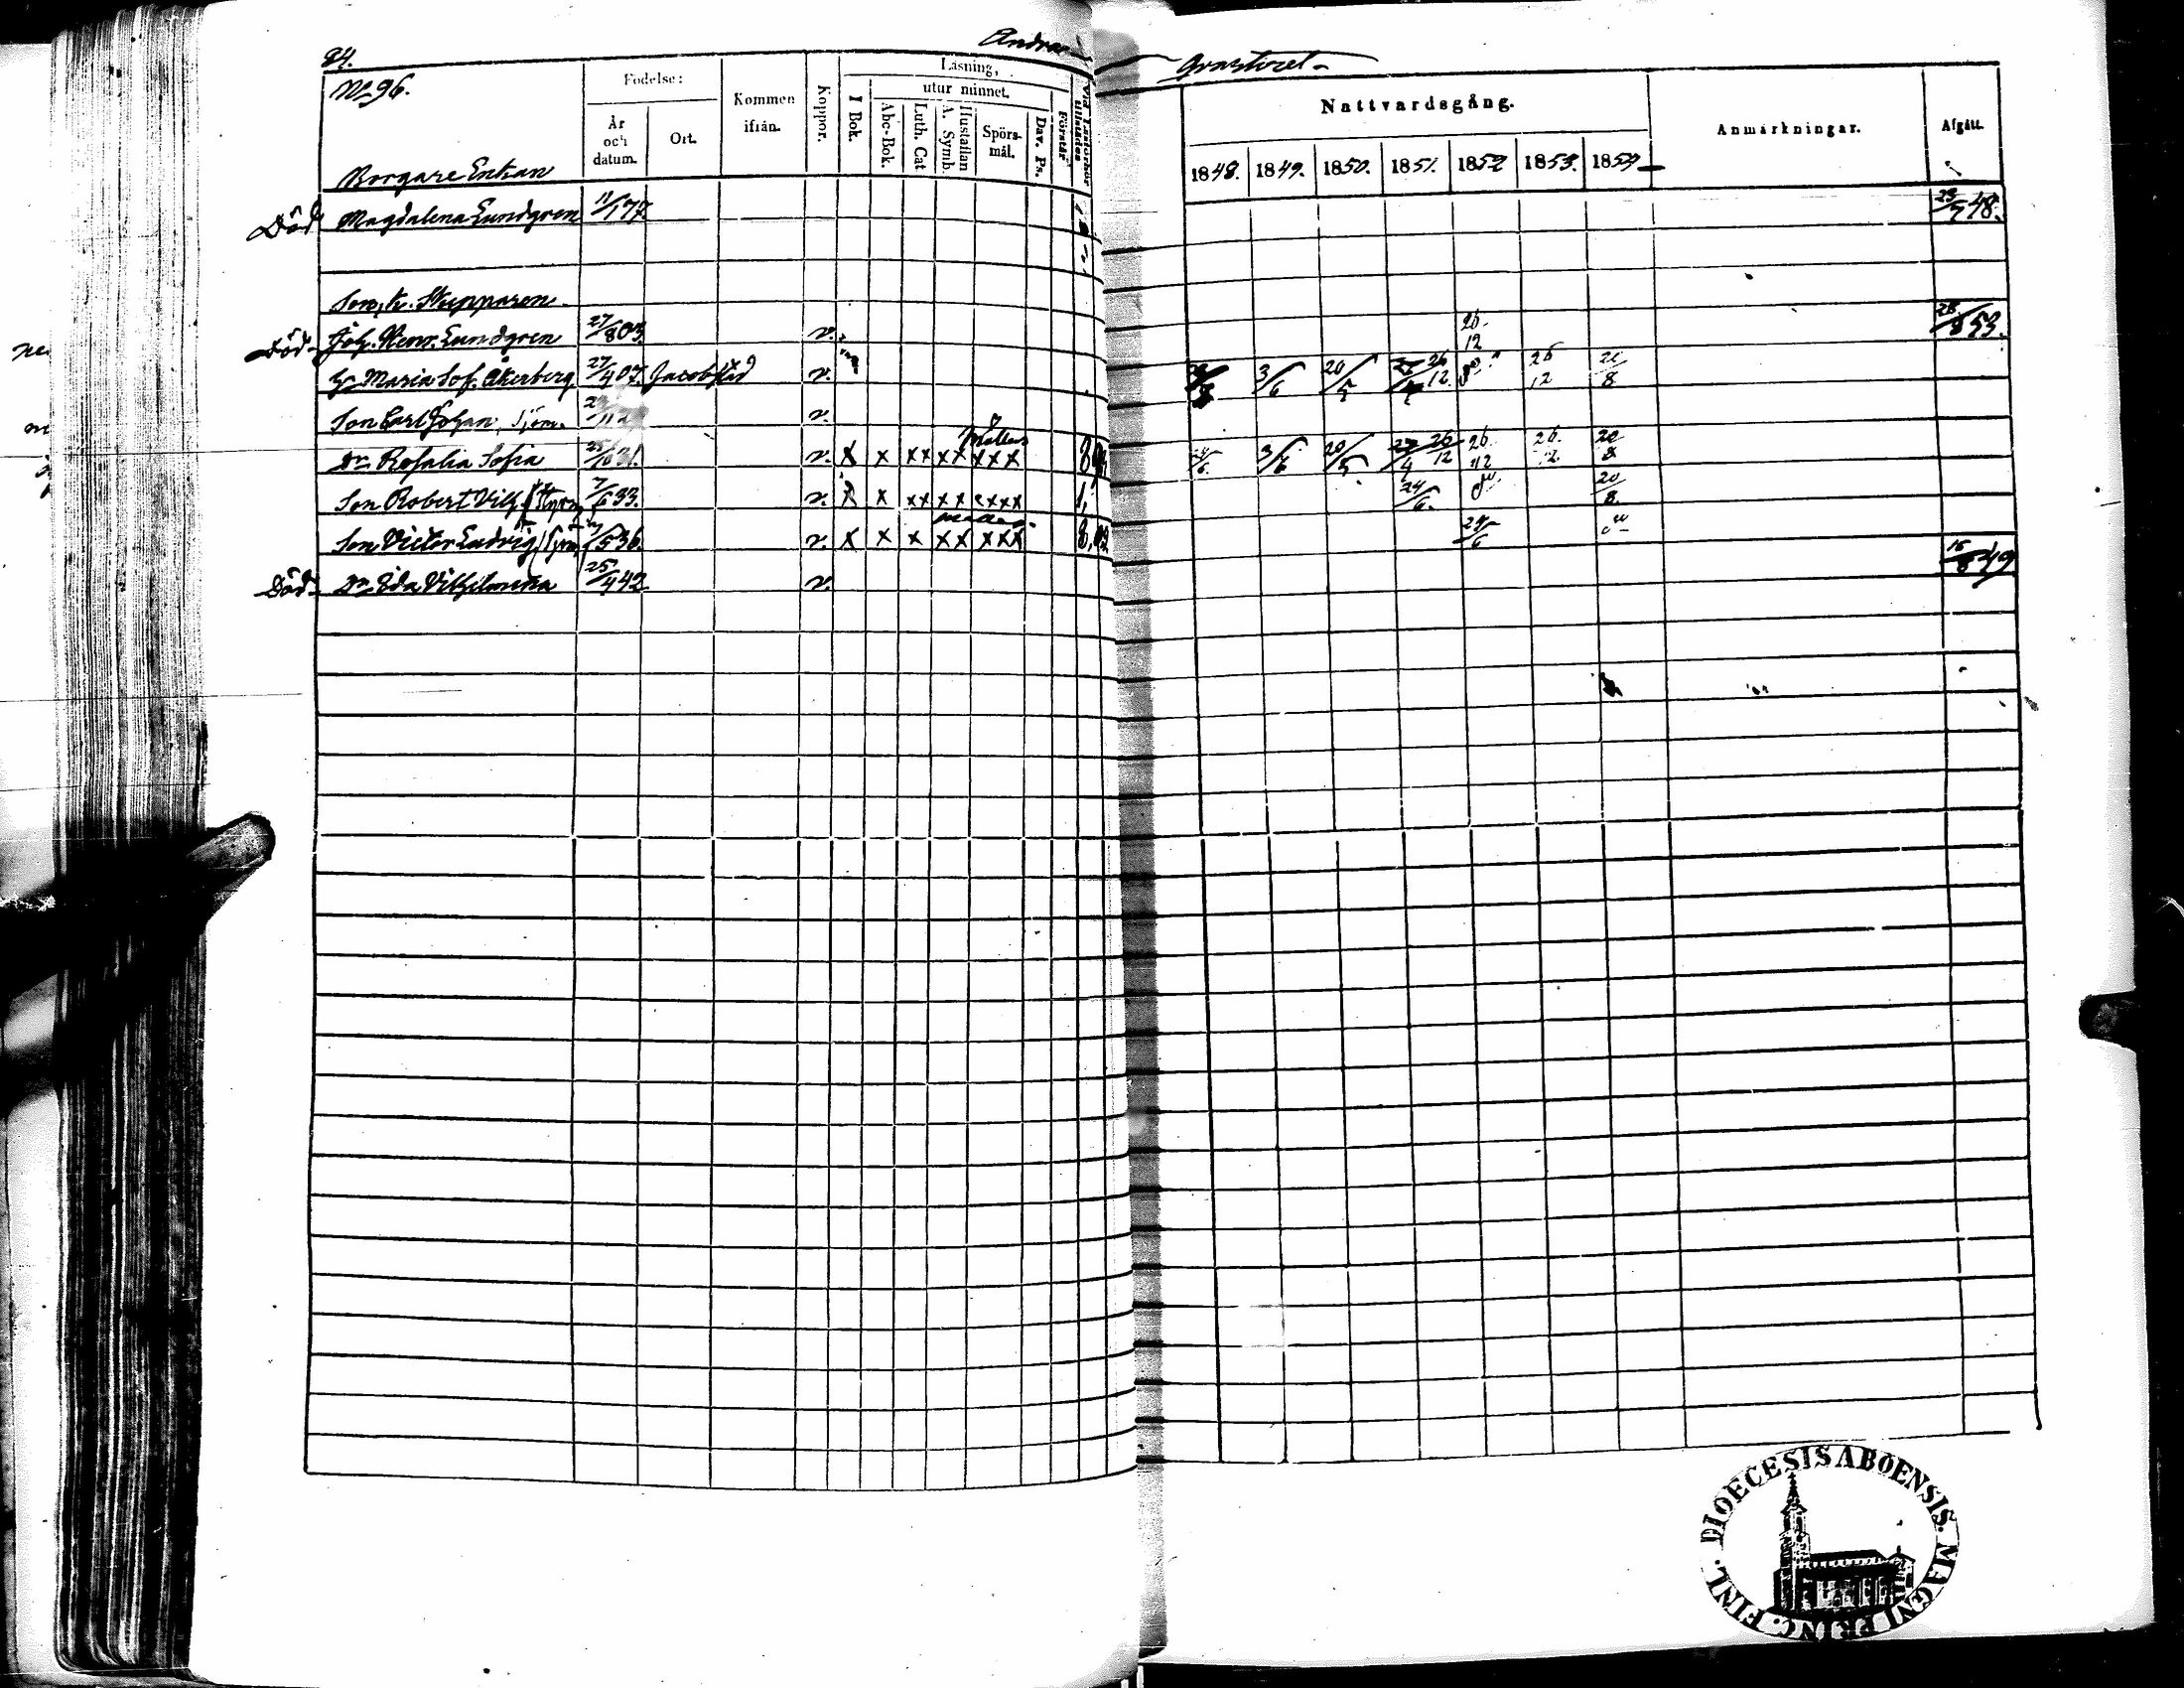 84. Andra Qvarteret
No 96.
Födelse:
År och datum.
Ort.
Kommen ifrån.
Koppor.
Läsning,
I Bok.
utur minnet.
Abc-Bok.
Luth. Cat
Hustaflan A. Symb.
Spörs-mål.
Dav. Ps.
Förstår
Vid Läsförhör tillstädes
Nattvardsgång.
1848. 1849. 1850. 1851. 1852 1853. 1854
Anmärkningar.
Afgått.
Borgare Enkan
Död Magdalena Lundgren 11/1 77. 23/7 48.
Son, Skepparen
Död Joh. Henr. Lundgren 27/8 03. v. 26/12 28/8 53.
H. Maria Sof. Åkerberg 27/4 07. Jacobstad v. 3/6 20/5 26/12 26/12 20/8
Son Carl Johan v.
Dr. Rosalia Sofia 25/10 31. v. x x xx xx xxx 24/6. 3/6 20/5 27/4 26/12 26/12 26/12 20/8
Son Robert Vilh. 7/6 33. v. x x xx xx xxx 1, 24/6. 20/8
Son Victor Ludvig 5 36. v. x x x xx xxx 24/6
Död Dr. Eda Vilhelmina 25/4 42 v. 16/8 49
DIOECESIS ABOENSIS. MAGNI PRINC. FINL.